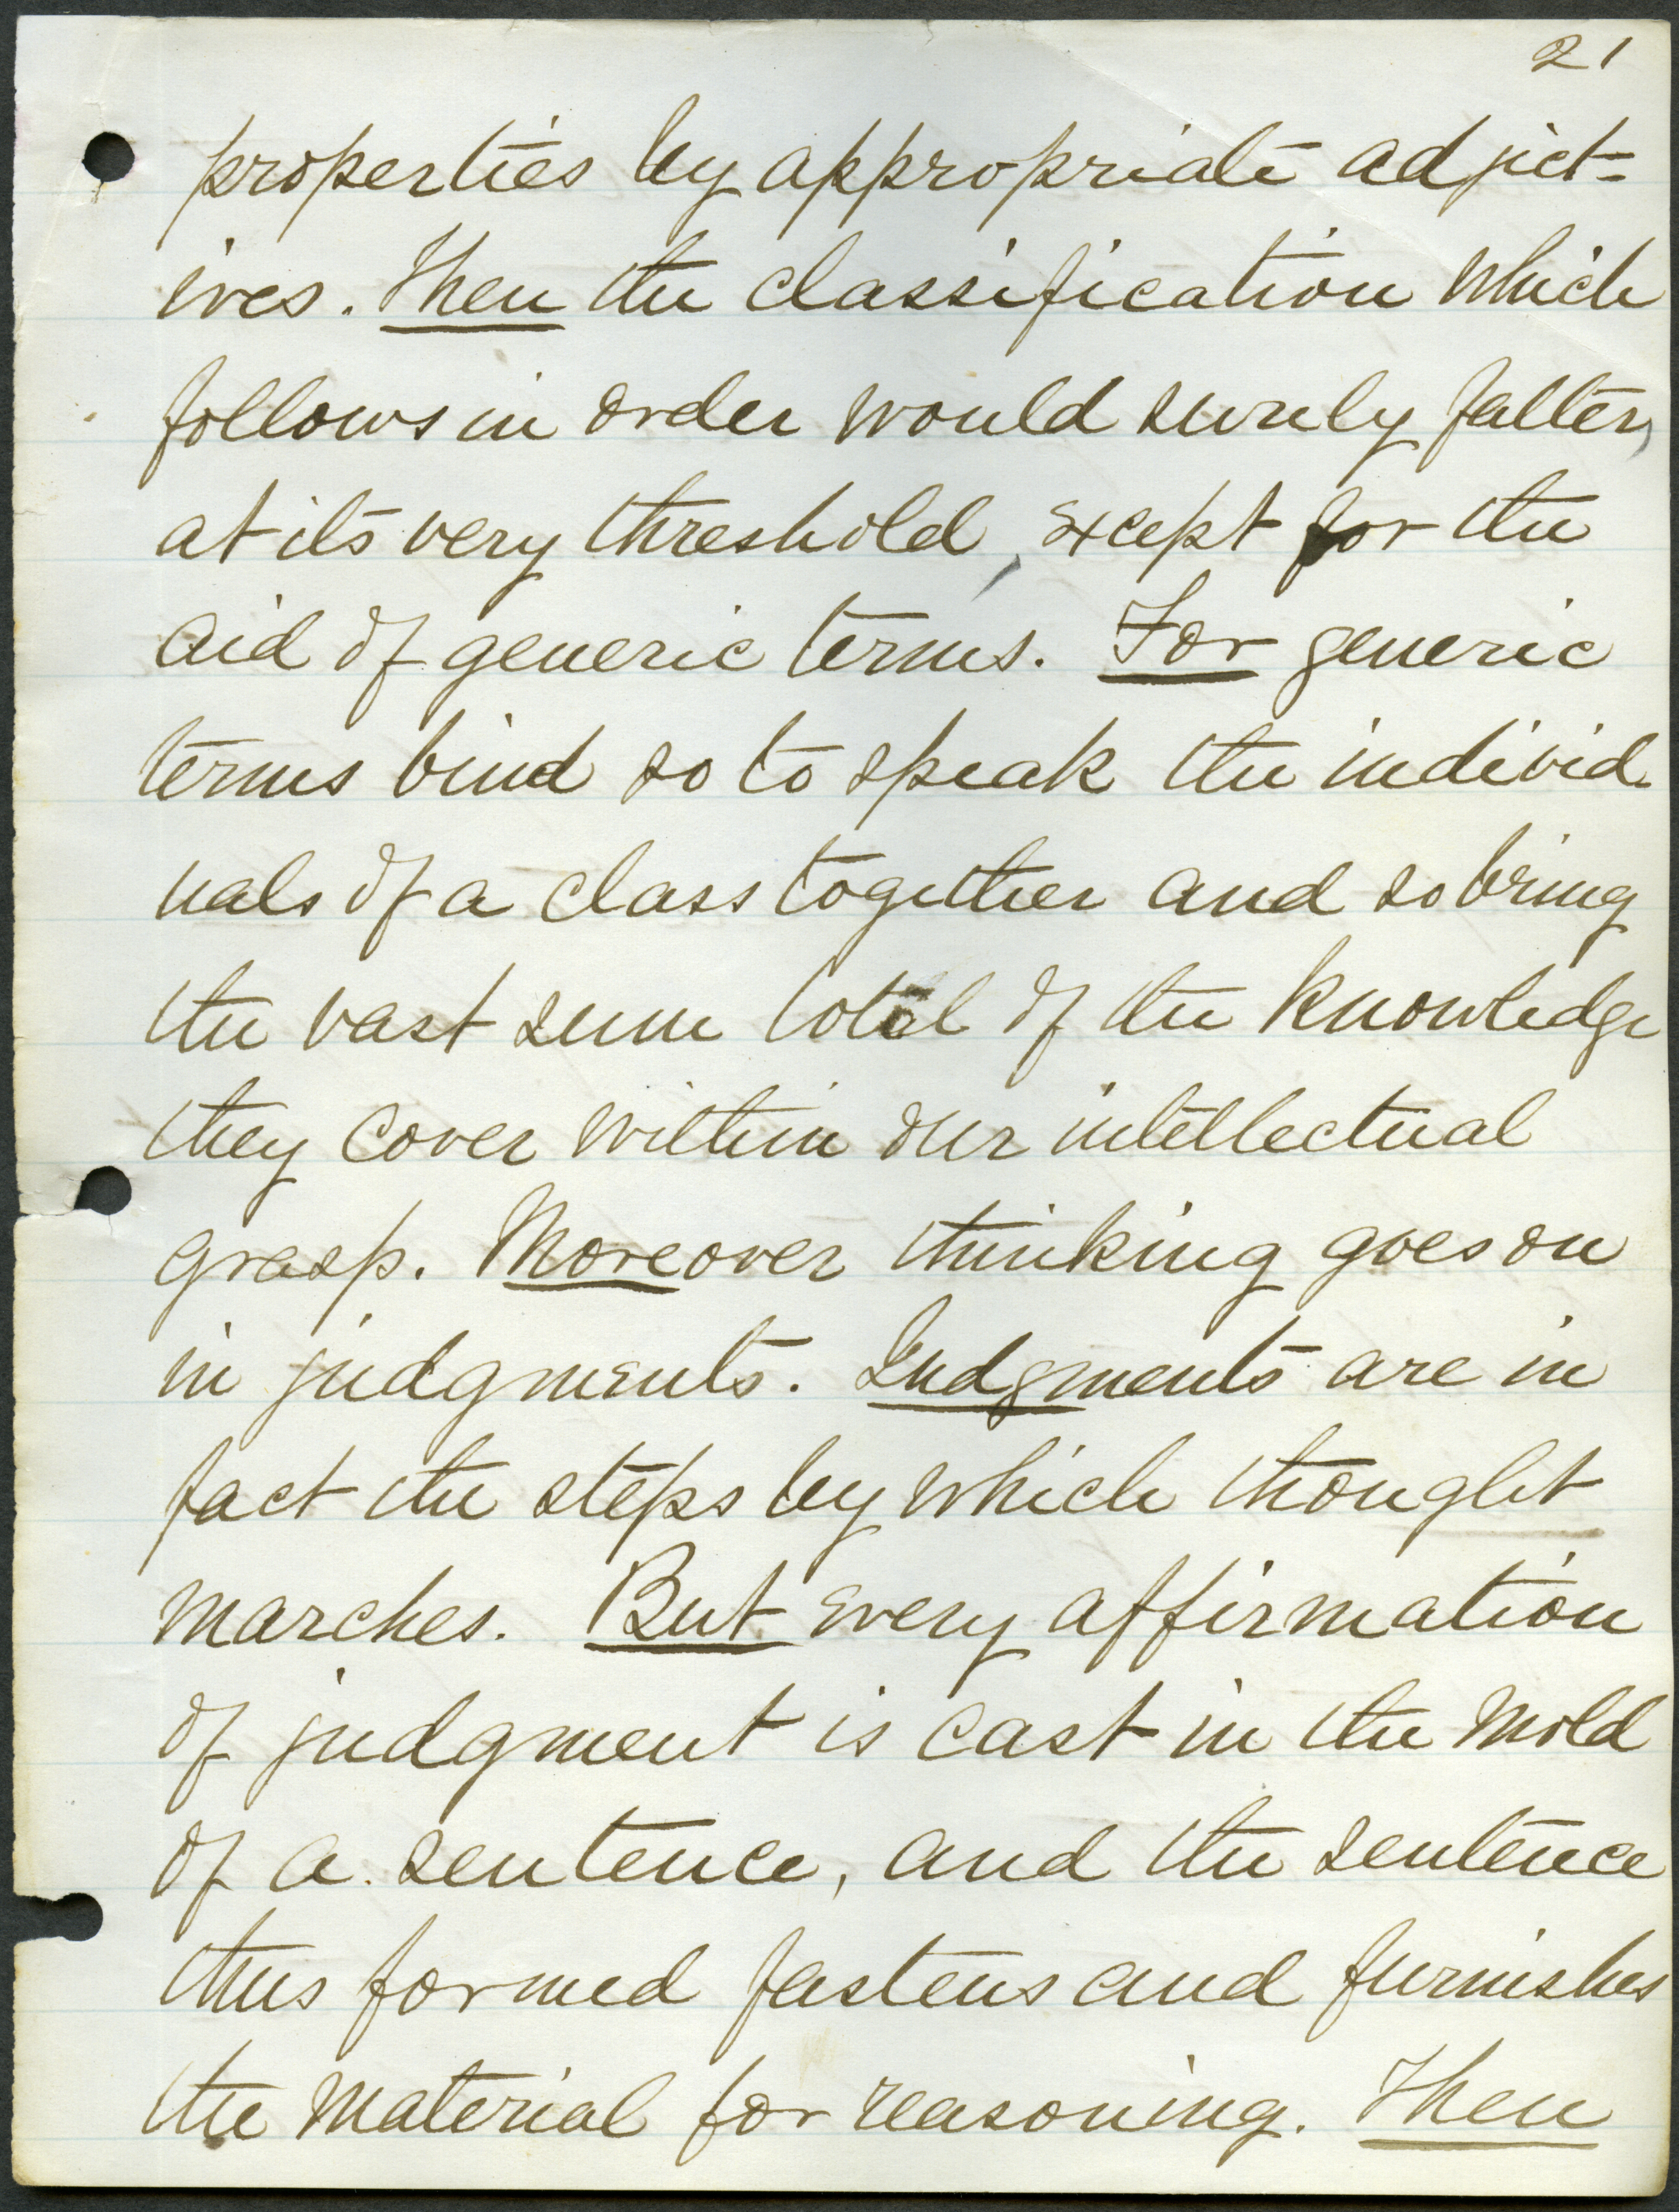 21
properties by appropriate adject-
ives. Then the classification which
follows in order would surely falter,
at its very threshold, except for the
aid of generic terms. For generic
terms bind so to speak the individ
uals of a class together and so bring
the vast sum total of the knowledge
they cover within our intellectual
grasp. Moreover thinking goes on
in judgments. Judgments are in
fact the steps by which thought
marches. But every affirmation
of judgment is cast in the mold
of a sentence, and the sentence
thus formed fastens and furnishes
the material for reasoning. Then